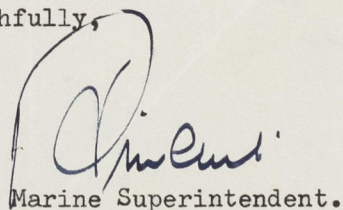 hfully,
Marine Superintendent.